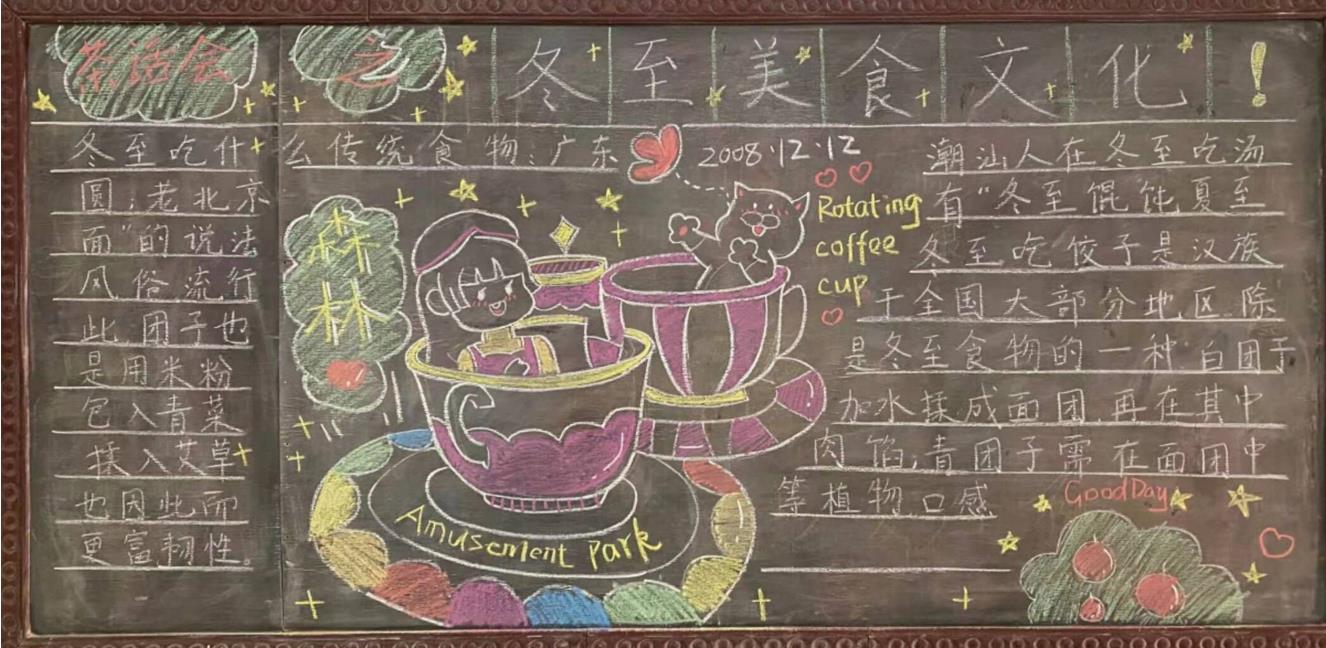 茶话会 之 冬至美食文化！
冬至吃什么传统食物：广东 潮汕人在冬至吃汤
2008.12.12
圆；老北京 有“冬至馄饨夏至
面”的说法 冬至吃饺子是汉族
风俗流行 于全国大部分地区.除
此.团子也 是冬至食物的一种.白团子
是用米粉 加水揉成面团.再在其中
包入青菜 肉馅；青团子需在面团中
揉入艾草 等植物.口感
也因此而
更富韧性。
森
林
Rotating
coffee
cup
Amusement park
GoodDay